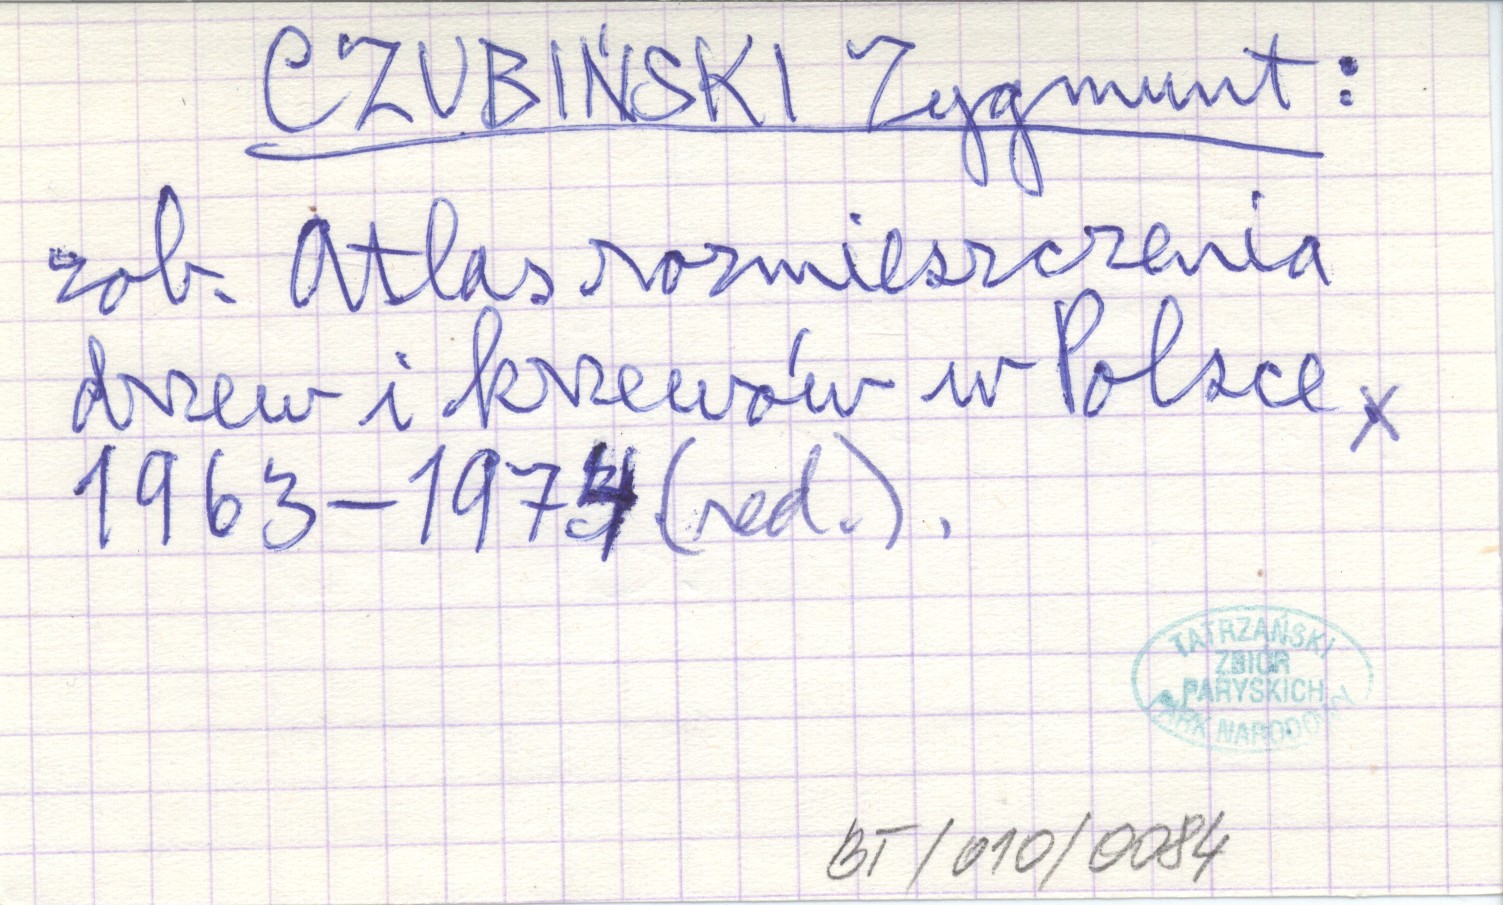 CZUBIŃSKI Zygmunt:
zob. Atlas rozmieszczenia
drzew i krzewów w Polsce x
1963–1974 (red.).
TATRZAŃSKI
ZBIÓR
PARYSKICH
PARK NARODOWY
BT/010/0084